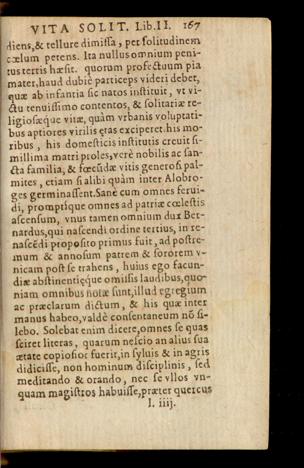 VITA SOLIT. Lib. II. 167
diens, & tellure dimissa, per solitudinem
cœlum petens. Ita nullus omnium peni-
tus tertis hæsit. quorum profectuum pia
mater, haud dubiè particeps videri debet,
quæ ab infantia sic natos instituit, vt vi-
ctu tenuissimo contentos, & solitariæ re-
ligiosæque vitæ, quàm vrbanis voluptati-
bus aptiores virilis ętas exciperet. his mo-
ribus, his domesticis institutis creuit si-
millima matri proles, verè nobilis ac san-
cta familia, & fœcūdæ vitis generosi pal-
mites, etiam si alibi quàm inter Alobro-
ges germinassent. Sanè cum omnes ferui-
di, promptique omnes ad patriæ cœlestis
ascensum, vnus tamen omnium dux Ber-
nardus, qui nascendi ordine tertius, in re-
nascēdi proposito primus fuit, ad postre-
mum & annosum patrem & sororem v-
nicam post se trahens, huius ego facun-
diæ abstinentięque omissis laudibus, quo-
niam omnibus notæ sunt, illud egregium
ac præclarum dictum, & his quæ inter
manus habeo, valdè consentaneum nō si-
lebo. Solebat enim dicere, omnes se quas
sciret literas, quarum nescio an alius sua
ætate copiosior fuerit, in syluis & in agris
didicisse, non hominum disciplinis, sed
meditando & orando, nec se vllos vn-
quam magistros habuisse, præter quercus
I. iiij.